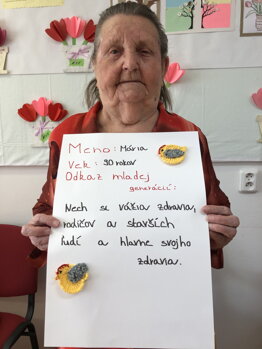 Meno: Mária
Vek: 90 rokov
Odkaz mladej
generácií:
Nech si vážia zdravia,
rodičov a starších
ľudí a hlavne svojho
zdravia.